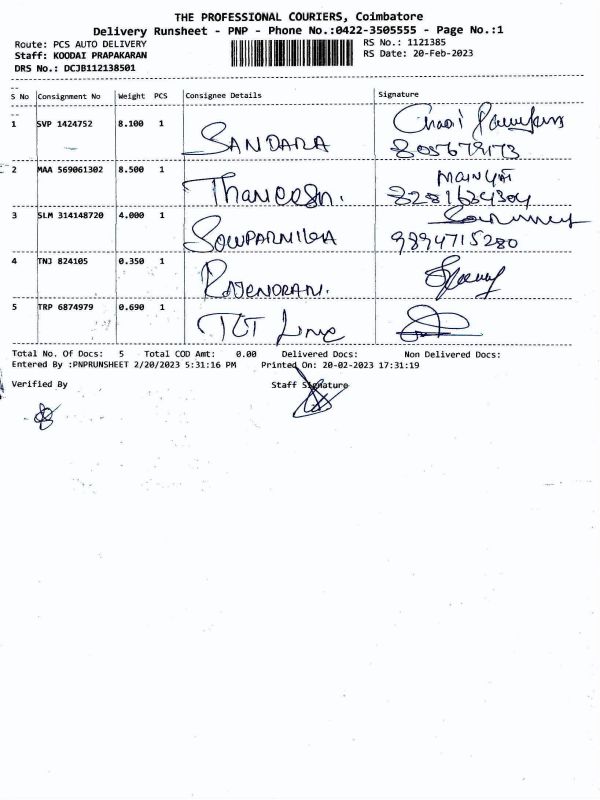 THE PROFESSIONAL COURIERS, Coimbatore
Delivery Runsheet - PNP - Phone No.:0422-3505555 - Page No.:1
Route: PCS AUTO DELIVERY
RS No.: 1121385
Staff: KOODAI PRAPAKARAN
RS Date: 20-Feb-2023
DRS No.: DCJB112138501
S No Consignment No Weight PCS Consignee Details Signature
1 SVP 1424752 8.100 1 SANDARA
2 MAA 569061302 8.500 1
3 SLM 314148720 4.000 1 SOWPARNIKA 9894715280
4 TNJ 824105 0.350 1
5 TRP 6874979 0.690 1
Total No. Of Docs: 5 Total COD Amt: 0.00 Delivered Docs: Non Delivered Docs:
Entered By :PNPRUNSHEET 2/20/2023 5:31:16 PM Printed On: 20-02-2023 17:31:19
Verified By Staff Signature